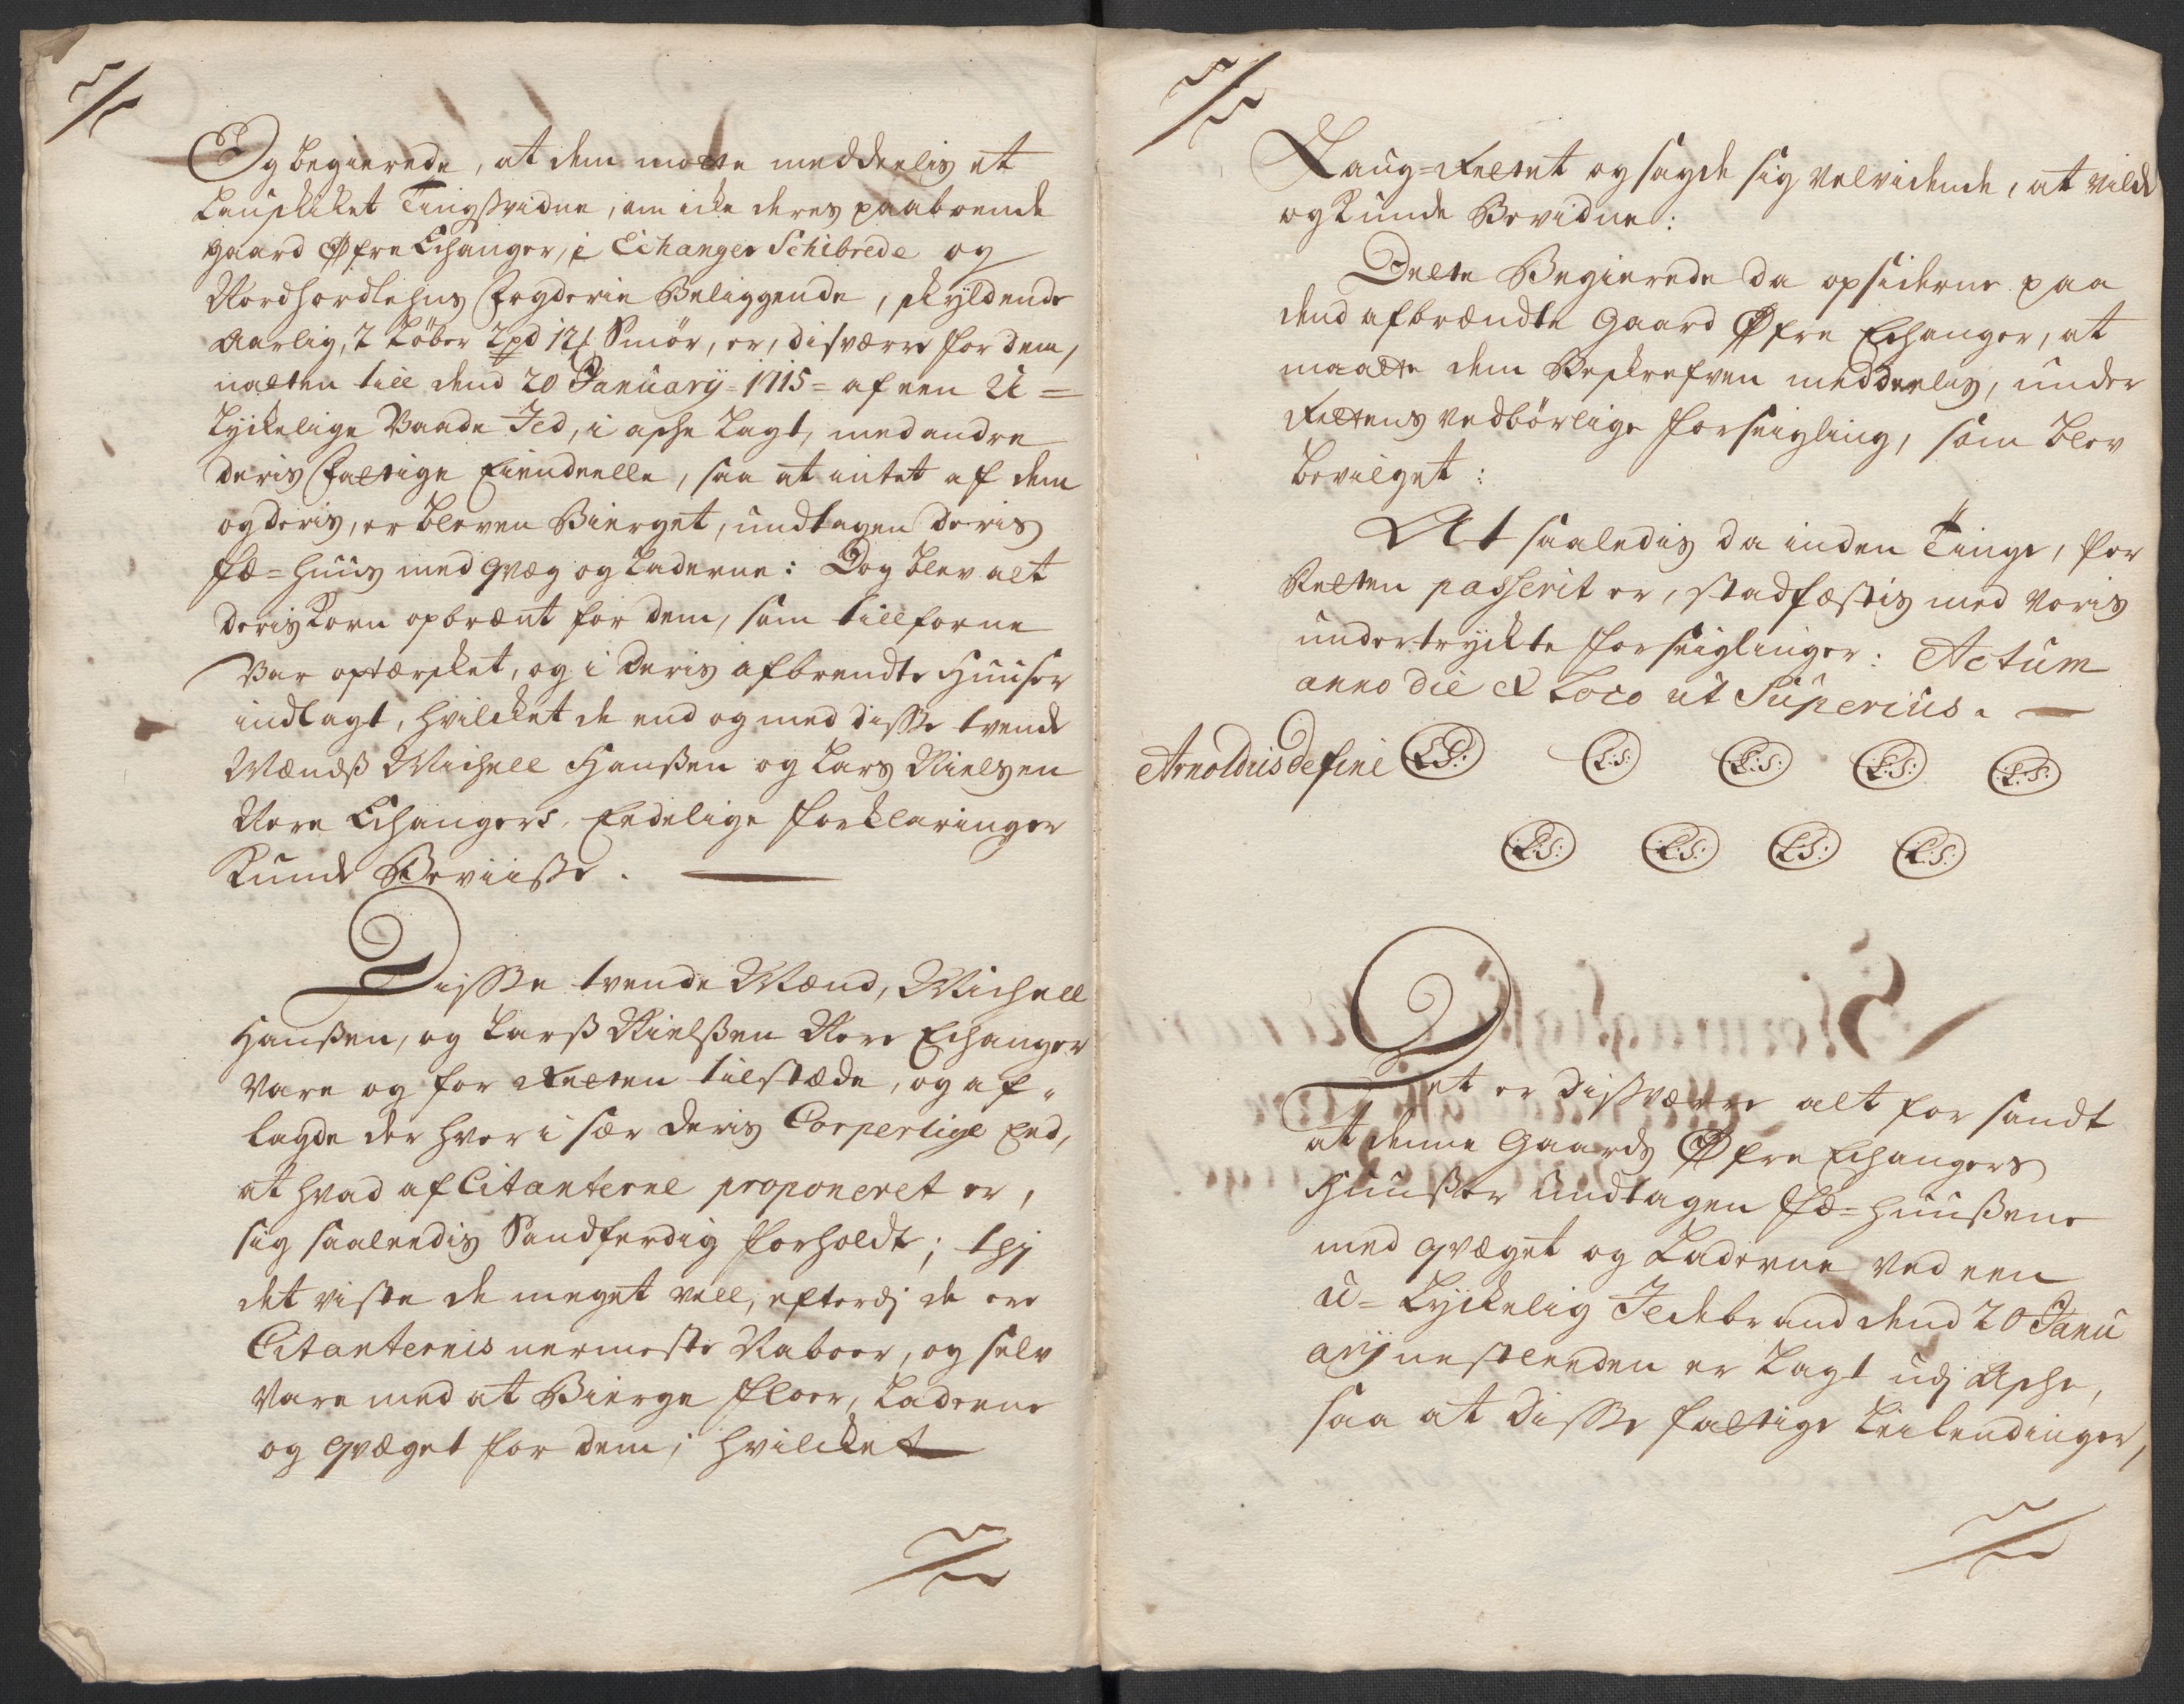 Og begierede, at dem motte meddeelis et
Laugskiket Tingsvidne, om icke deres paaboende
gaard Øfre Echanger, i Echanger Schibrede og
Nordhordlehns Fogderie Beliggende, skÿldende
Aarlig, 2 Løber 2 pd 12 Smør, er, disværre for dem,
natten till dend 20 Januarij 1715 = af een U=
Lyckelige Vaade Jld, i aske Lagt, med andre
deris Fattige Eiendeelle, saa at intet af dem
og deris, er bleven Bierget, undtagen deris
Fæ=huus med qvæg og Laderne: Dog blev alt
deris Korn opbrent for dem, som tillforne
Var optærsket, og i deris afbrendte Huuser
indlagt, hvilcket de end og med disse tvende
Mænds Michell Hanßen og Lars Nielsen
Nere Echangers, Eedelige forklaringer
Kunde Beviiße.
Disse tvende Mænd, Michell
Hanßen, og Larß Nielßen Nere Echanger
Vare og for Retten tilstæde, og af=
lagde der hver i sær deris Corperlige Eed,
at hvad af Citanterne proponeret er,
sig saaleedis Sandferdig forholdt; thj
det viste de meget vell, efterdj de ere
Citanternis nermeste Naboer, og selv
Vare med at Bierge Floer, Laderne
og qvæget for dem; hvilcket
Laug=Rettet og sagde sig velvidende, at vilde
og Kunde Bevidne:
Dette Begierede da opsiderne paa
dend afbrændte Gaard Øfre Echanger, at
maatte dem Beskrefven meddeelis, under
Rettens vedbørlige forseigling, som blev
bevilget:
At saaledis da inden Tinge, for
Retten passerit er, stadfæstis med voris
undertryckte forseiglinger: Actum
anno die & Loco ut Superius.
Arnoldus de fine L.S: L.S: L.S: L.S: L.S:
L.S: L.S: L.S: L.S:
Det er dißværre alt for sandt
at denne Gaards Øfre Echangers
Huußer undtagen Fæ=huußene
med qvæget og Laderne ved een
U=Lyckelig Jldebrand dend 20 Janu
arij nestleeden er Lagt udj Aske,
saa at disse fattige Leilendinger,